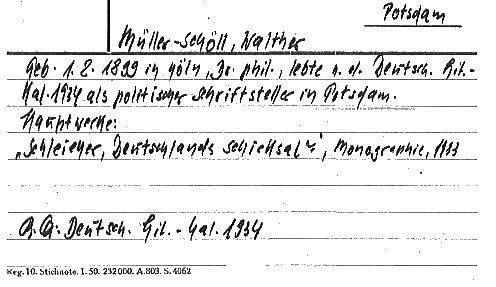 Potsdam
Müller-Schöll, Walther
Geb. 1. 2. 1899 in Köln, Dr. phil., lebte n. d. Deutsch. Lit.-
Kal. 1934 als politischer Schriftsteller in Potsdam.
Hauptwerke:
„Schleicher, Deutschlands Schicksal?", Monographie, 1933
Qu: Deutsch. Lit.-Kal. 1934
Reg. 10. Stichnote. I. 50. 232000. A. 803. S. 4062